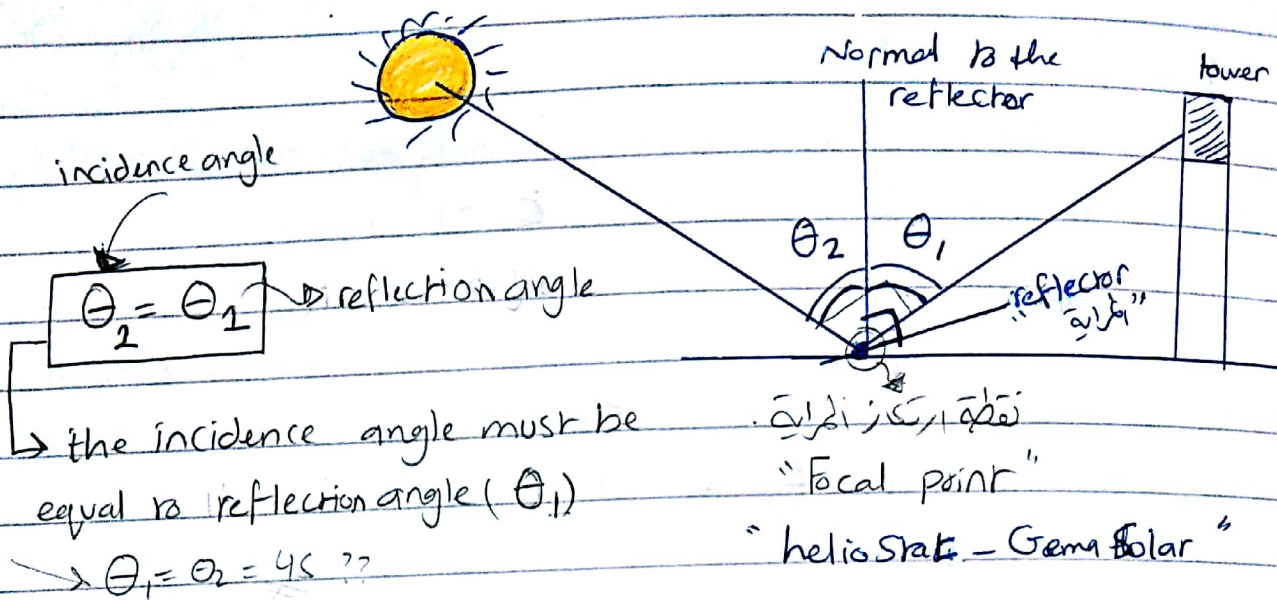 Normal to the
reflector
tower
incidence angle
θ2 θ1
θ2 = θ1
reflection angle
reflector
"المراية"
the incidence angle must be
equal to reflection angle (θ1)
θ1 = θ2 = 45 ??
نقطة ارتكاز المراية.
"Focal point"
"helioStat - Gema Solar"